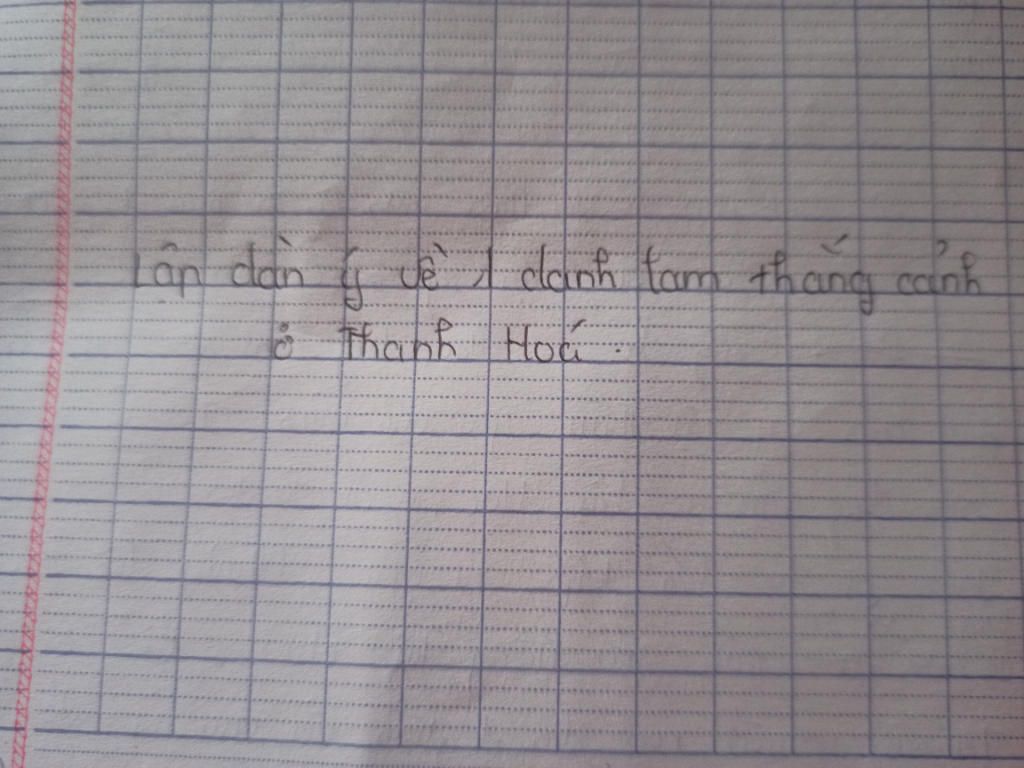 Lân dàn ý về 1 danh lam thắng cảnh
ở Thanh Hoá.